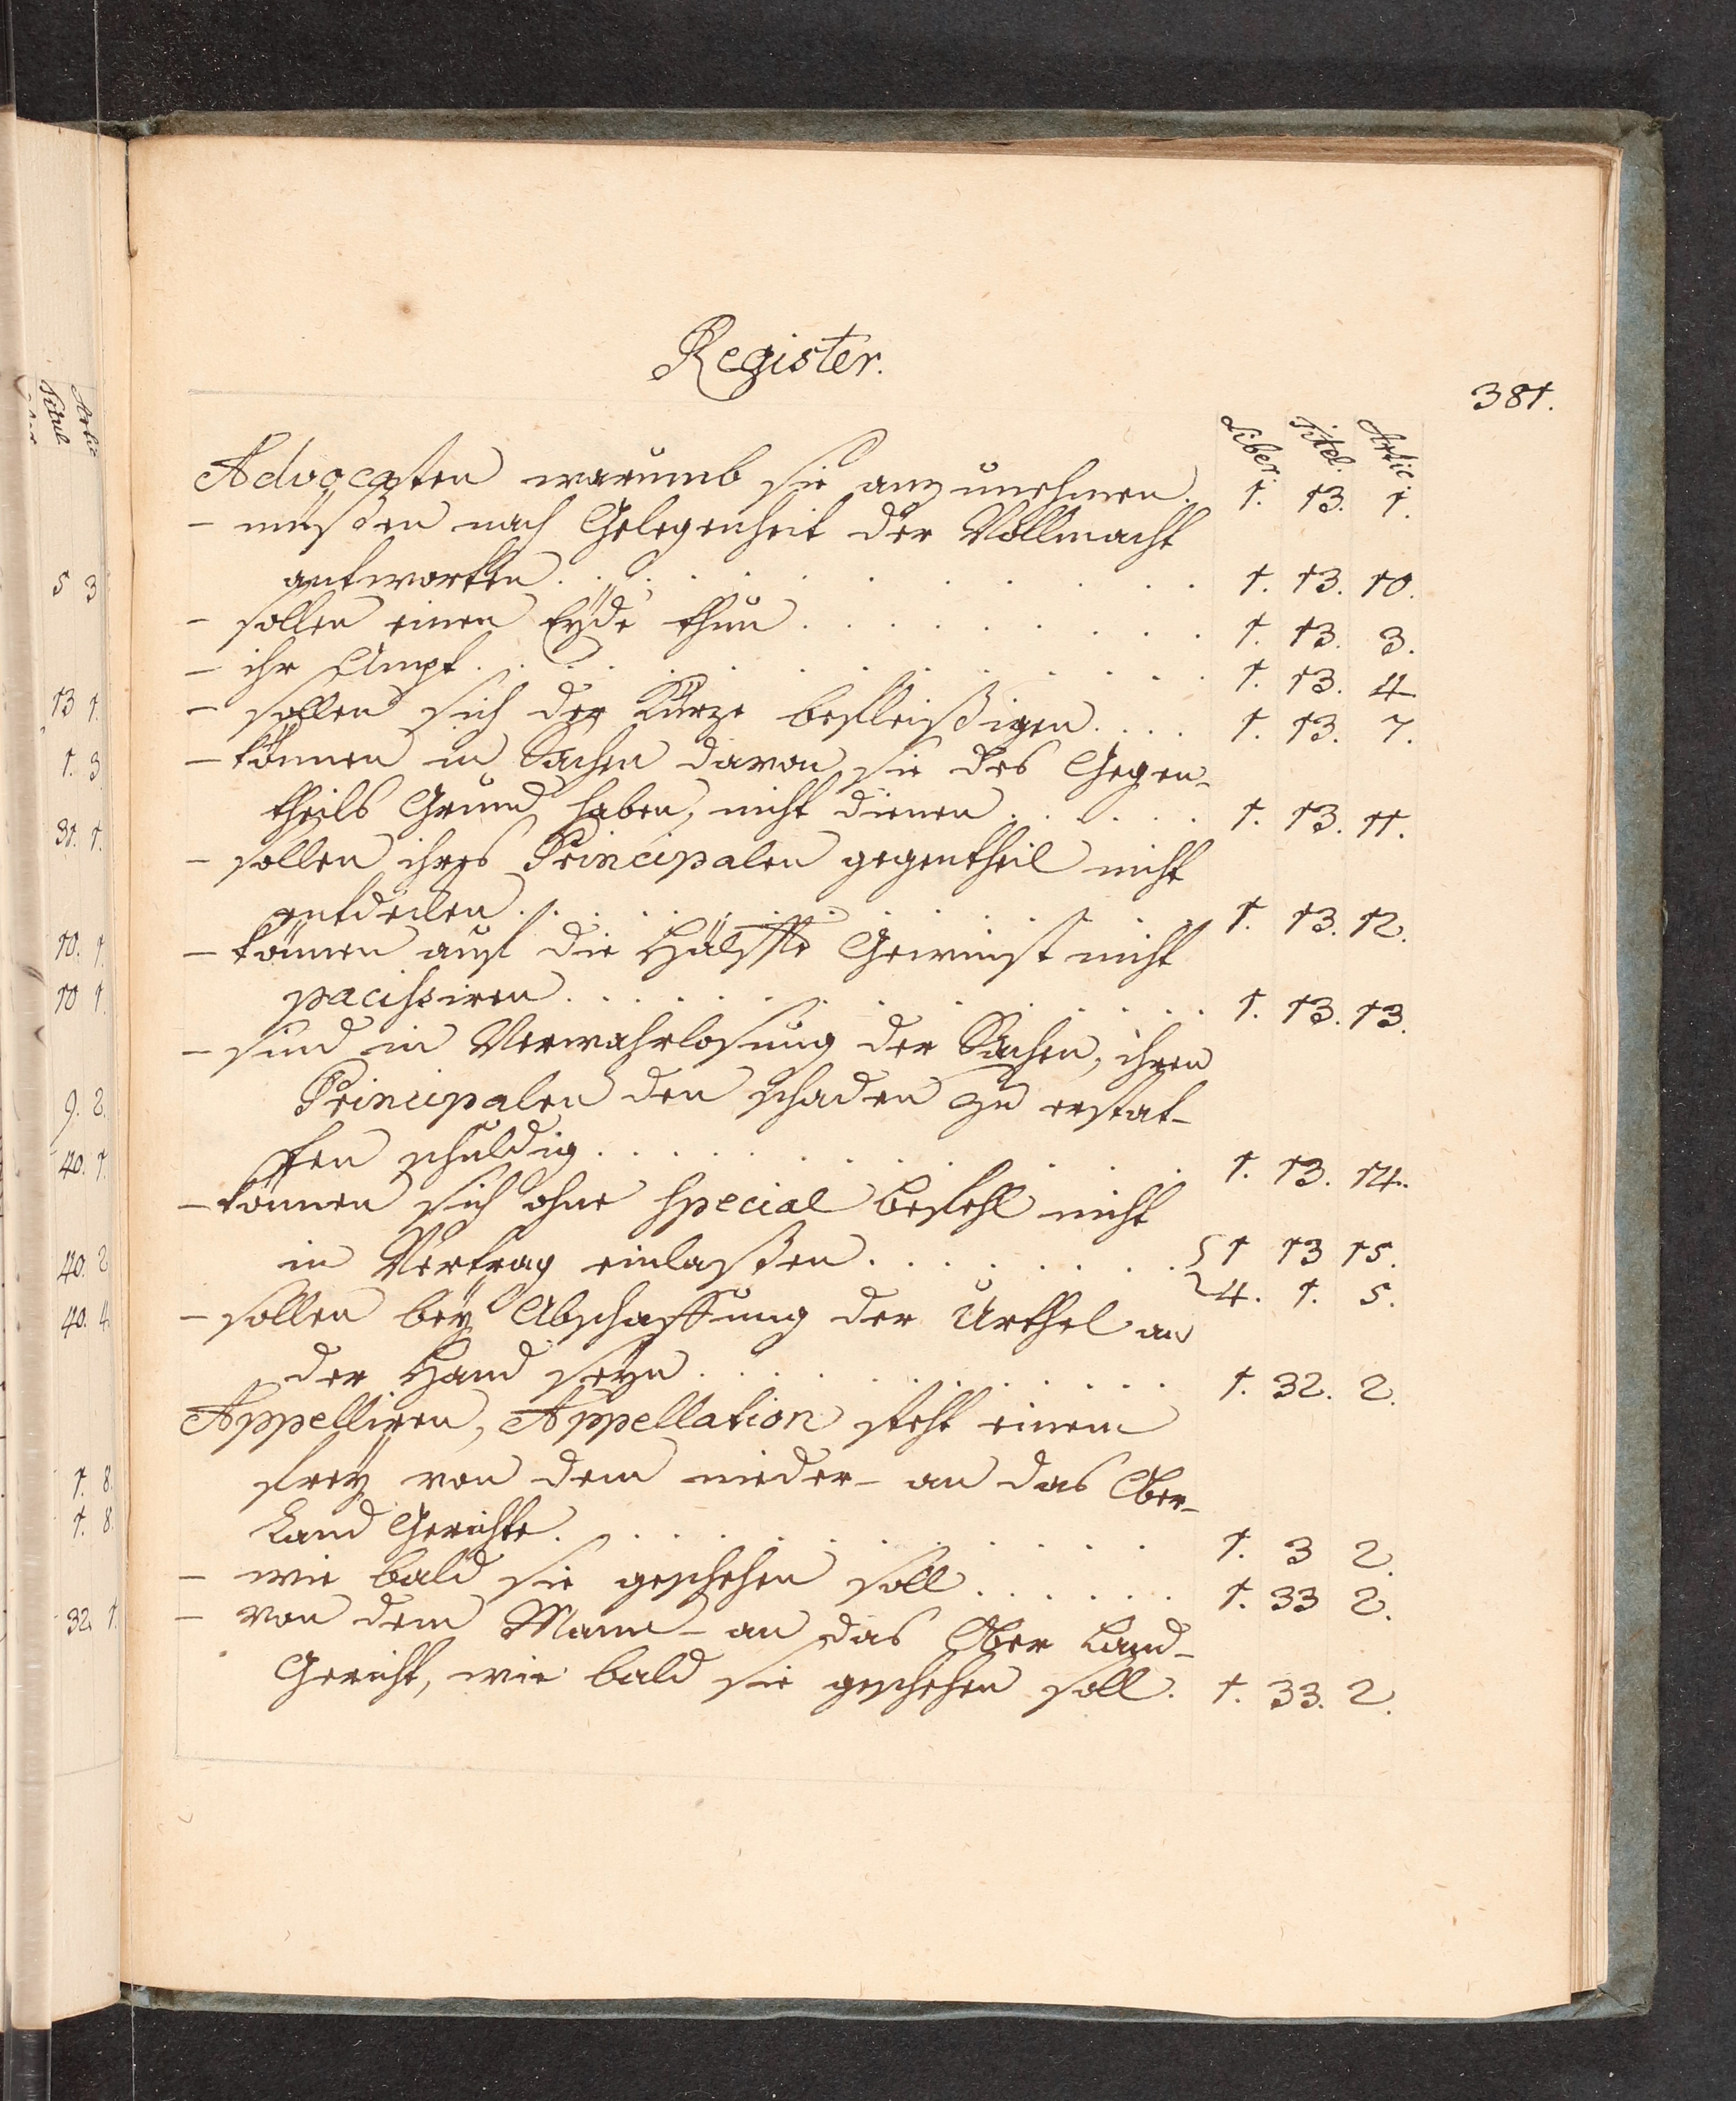 Register.
381.
Liber. Titel. Artic:
Advocaten warumb sie anzunehmen. 1. 13. 1.
- müßen nach Gelegenheit der Vollmacht
antworten. . . . . . . . . . . 1. 13. 10.
- sollen einen Eÿde thun . . . . . . . . 1. 13. 3.
- ihr Ampt. . . . . . . . . . . . 1. 13. 4
- sollen sich der Kürze befleißigen. . . . 1. 13. 7.
- können in Sachen davon sie des Gegen-
theils Grund haben, nicht dienen . . . . . 1. 13. 11.
- sollen ihres Principalen gegentheil nicht
entdecken . . . . . . . . . . . 1. 13. 12.
- können auf die Hälffte Gewinst nicht
pacisciren . . . . . . . . . . . 1. 13. 13.
- sind in Verwahrlosung der Sachen, ihren
Principalen den schaden zu erstat-
ten schuldig . . . . . . . . . . 1. 13. 14.
- können sich ohne special befehl nicht
in Vertrag einlaßen . . . . . . . { 1 13 15.
4. 1. 5.
- sollen beÿ Abschaffung der Urthel an
der Hand seÿn . . . . . . . . . 1. 32. 2.
Appelliren, Appellation steht einem
freÿ von dem nieder- an das Ober-
Land Gerichte. . . . . . . . . . . 1. 3 2.
- wie bald sie geschehen soll . . . . . . 1. 33 2.
- von dem Mann- an das Ober Land-
Gericht, wie bald sie geschehen soll. 1. 33. 2.
Titul Artic
5 3
13 1.
1. 3
31. 1.
10. 1.
10 1.
9. 2.
40. 1.
40. 2
40. 4.
1. 8.
1. 8.
32. 1.